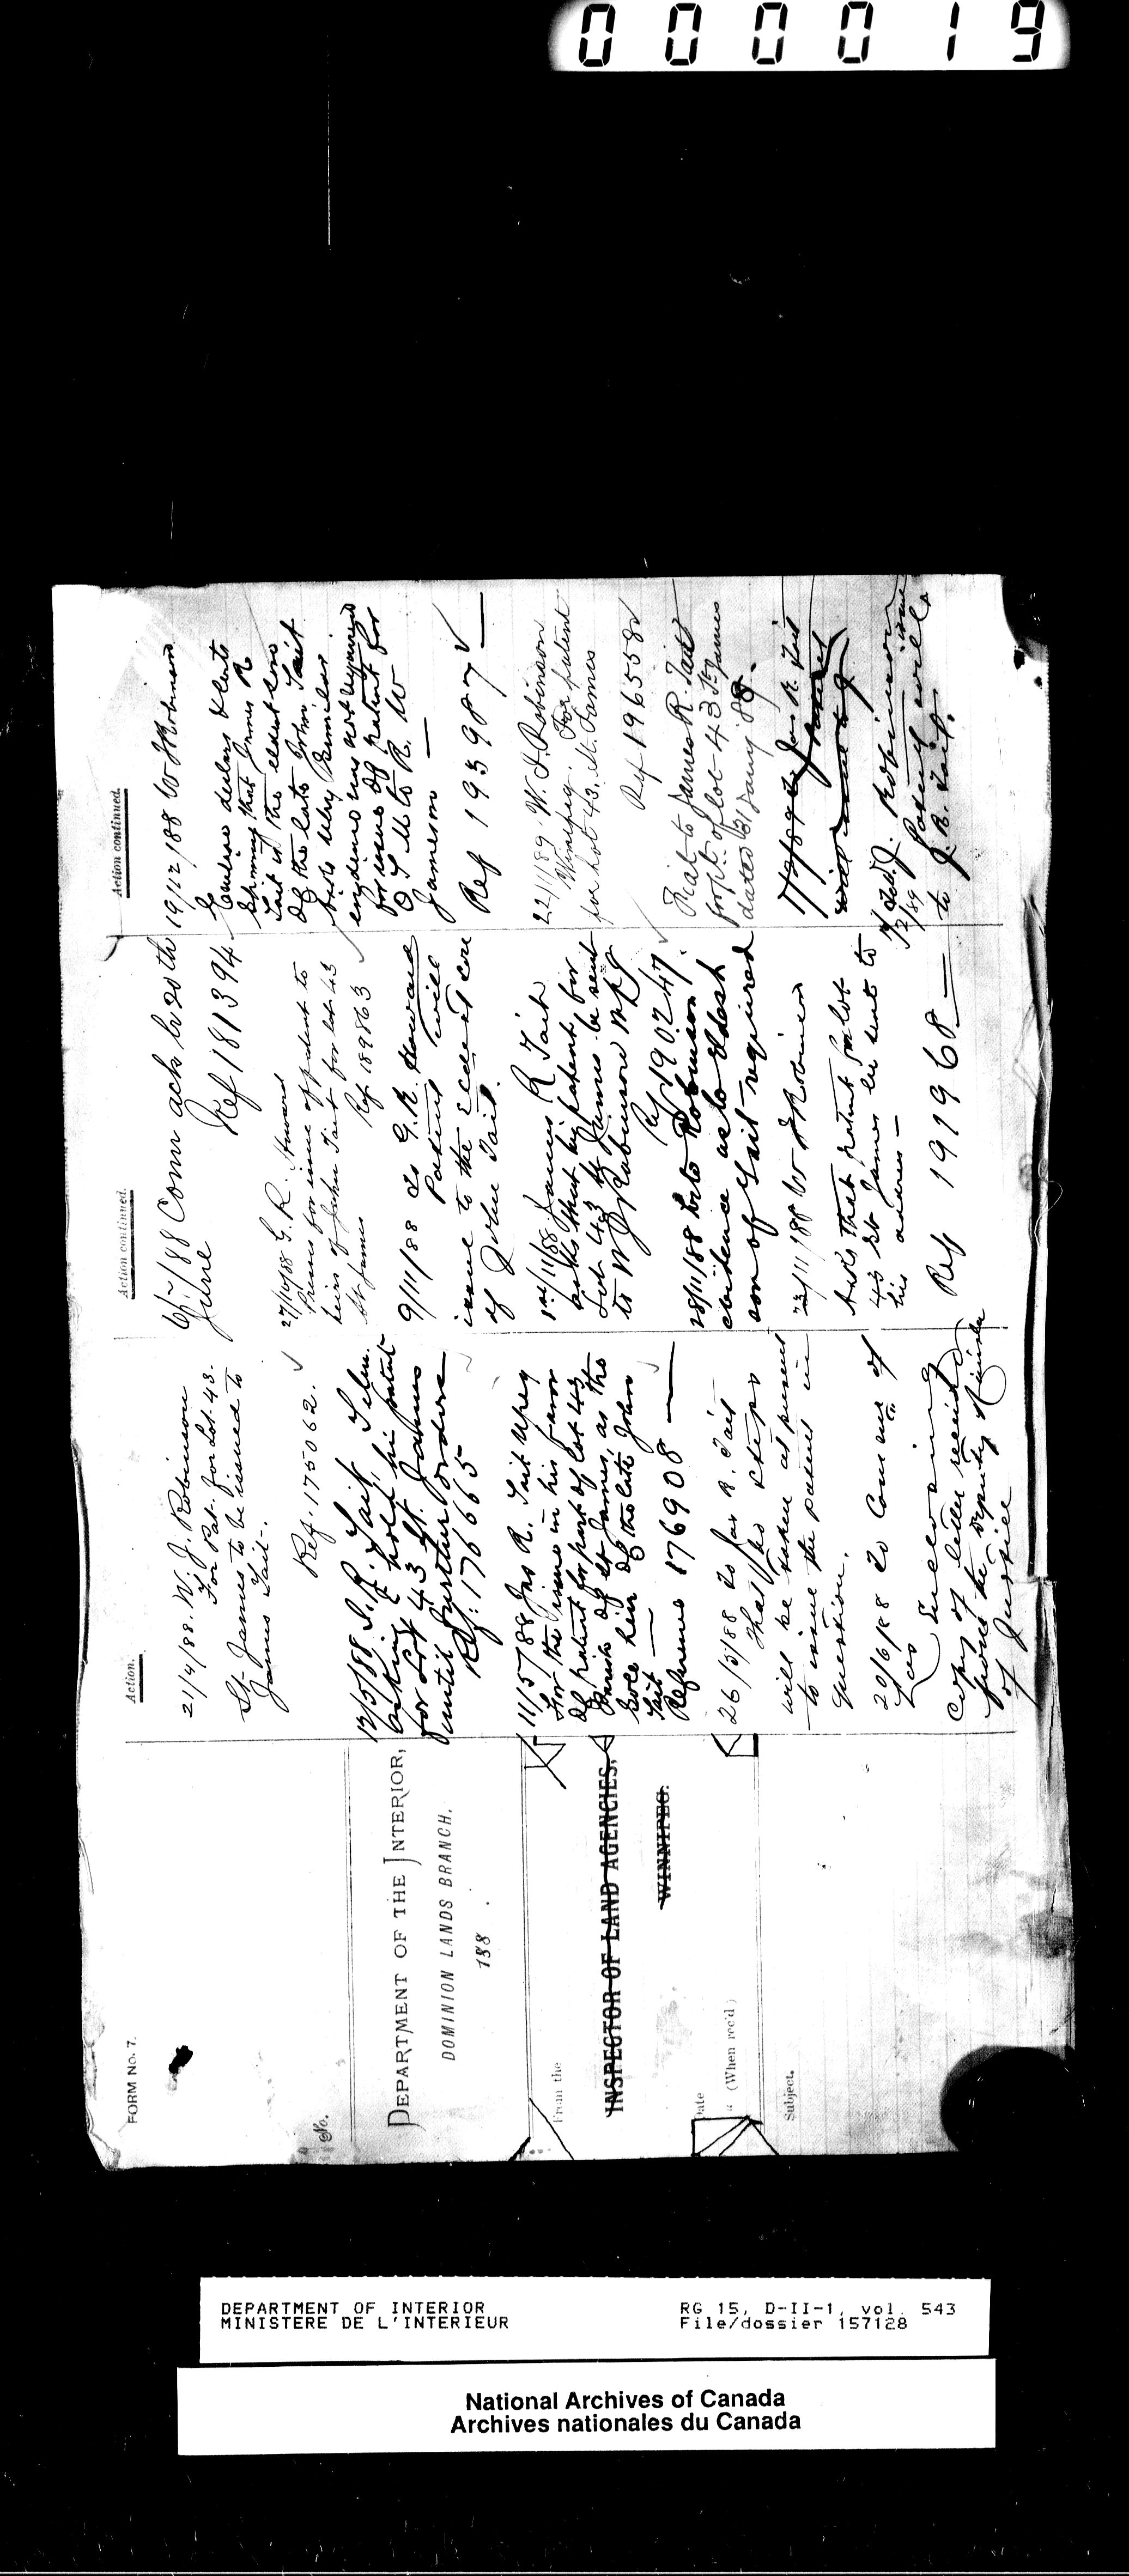 000019
FORM No. 7.
No.
DEPARTMENT OF THE INTERIOR,
DOMINION LANDS BRANCH.
188 .
From the
INSPECTOR OF LAND AGENCIES,
WINNIPEG.
Date
" (When rec'd)
Subject.
Action.
21/4/88. W. J. Robinson
For Pat. for Lot 43.
St. James to be issued to
James Tait.
Ref. 175062.
12/5/88 J. R. Tait, Telm.
asking to hold his patent
for Lot 43 St. James
until further orders
Ref: 176665
11/5/88 Jas R. Tait
For the issue in his favor
of patent for part of lot 43
Parish of St James, as the
sole heir of the late John
Tait
Reference 176908
26/5/88 To Jas R. Tait
That no steps
will be taken at present
to issue the patent in
question.
20/6/88 To Comr of
Enclosing
copy of letter received
from the Deputy Minister
of Justice
Action continued.
June
Comr ack 20th
Ref 181394
27/10/88 G. R. Howard
Presses for issue of patent to
heirs of John Tait for lot 43
St James
Ref 189863
9/11/88 To G. R. Howard
Patent will
issue to the
of John Tait.
1st/11/88 James R Tait
asks that his patent for
Lot 43 St James be sent
to W J Robinson
Ref 190247
28/11/88 to Robinson
evidence as to eldest
son of Tait required
23/11/88 W J Robinson
Asks that patent for lot
43 St James be sent to
his address
Ref 191968
Action continued.
19/12/88 W J Robinson
Encloses
that James R
Tait is the eldest son
of the late John Tait
asks why similar
evidence was not required
for issue of patent for
O T M to R. W
Jameson
Ref 193987
22/1/89 W. J. Robinson
Winnipeg. For patent
for Lot 43, St. James
Ref 196558
Fiat to James R. Tait
for pt. of lot 43 St James
dated 31 Jany 89.
7/2/89 To Jas R Tait
patent
will
To W. J. Robinson
Patent will issue
to J. R. Tait.
DEPARTMENT OF INTERIOR
MINISTERE DE L'INTERIEUR
RG 15, D-II-1, vol. 543
File/dossier 157128
National Archives of Canada
Archives nationales du Canada